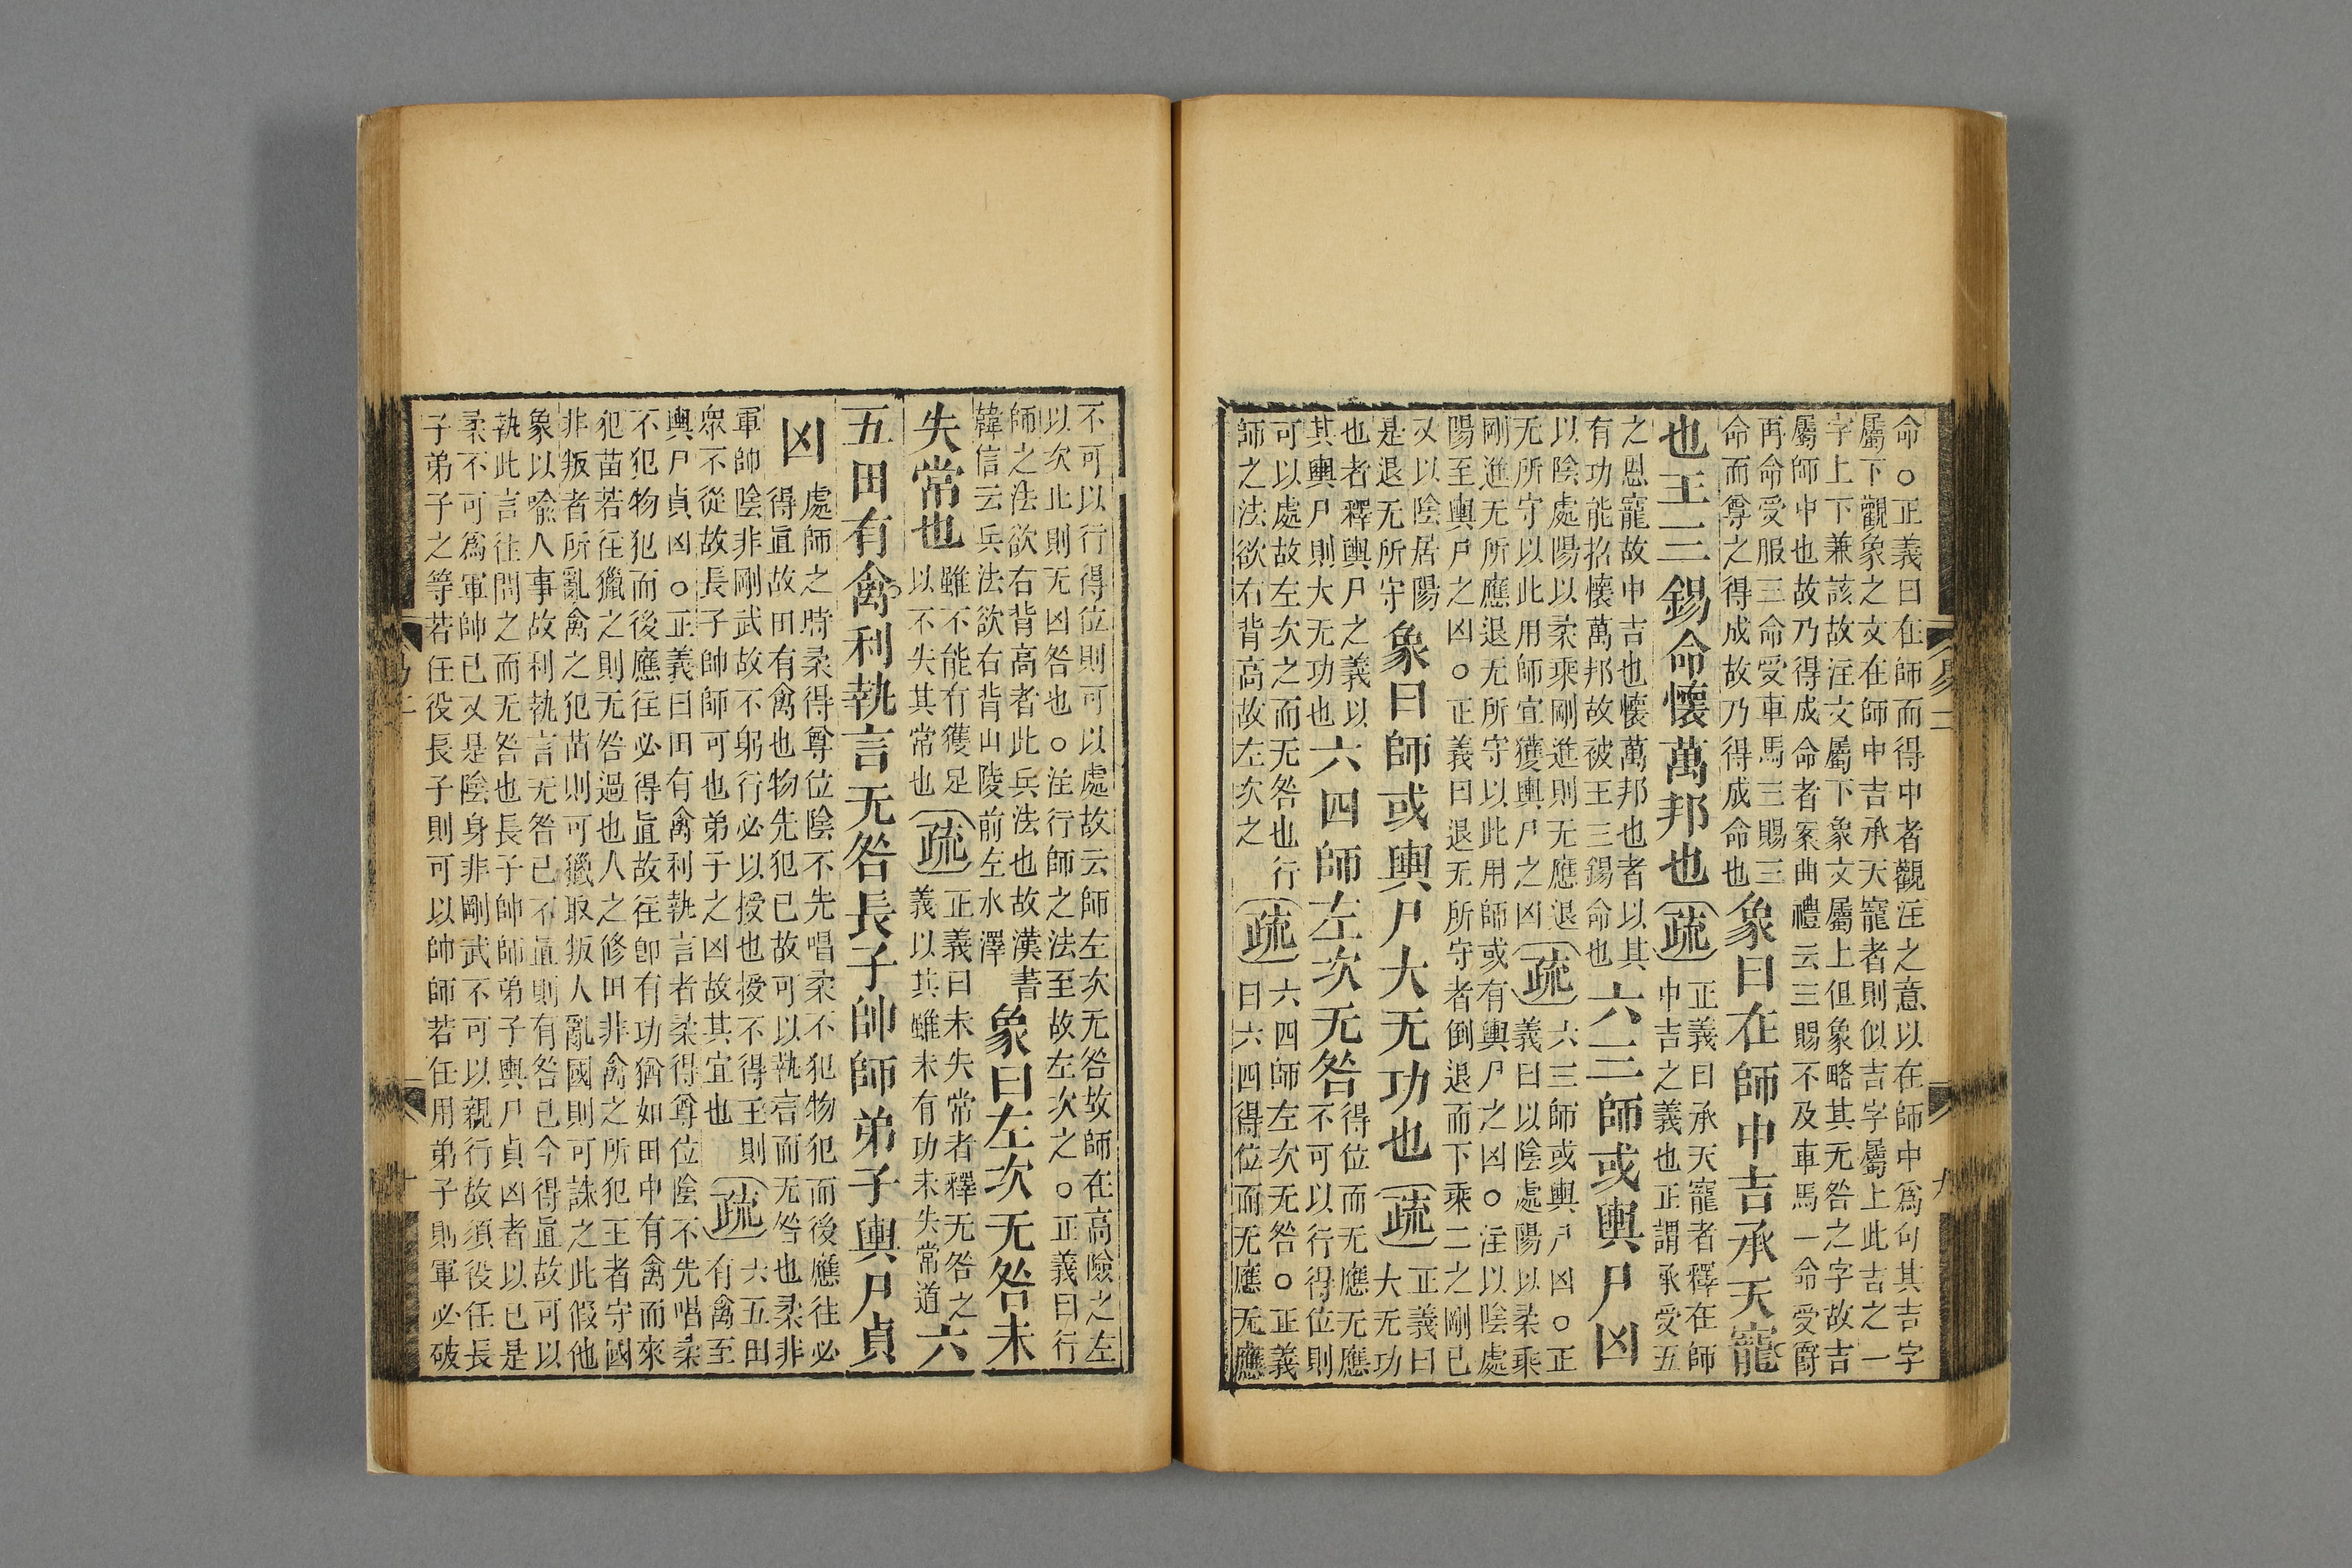 命○正義曰在師而得中者觀注之意以在師中爲句其吉字
屬下觀象之文在師中吉承天寵者則似吉字屬上此吉之一
字上下兼該故注文屬下象文屬上但象略其无咎之字故吉
屬師中也故乃得成命者案曲禮云三賜不及車馬一命受爵
再命受服三命受車馬三賜三
命而尊之得成故乃得成命也
象曰在師中吉承天寵
也王三錫命懷萬邦也
疏
正義曰承天寵者釋在師
中吉之義也正謂承受五
之恩寵故中吉也懷萬邦也者以其
有功能招懷萬邦故被王三錫命也
六三師或輿尸凶
以陰處陽以柔乘剛進則无應退
无所守以此用師宜獲輿尸之凶
疏
六三師或輿尸凶○正
義曰以陰處陽以柔乘
剛進无所應退无所守以此用師或有輿尸之凶○注以陰處
陽至輿尸之凶○正義曰退无所守者倒退而下乘二之剛已
又以陰居陽
是退无所守
象曰師或輿尸大无功也
疏
正義曰
大无功
也者釋輿尸之義以
其輿尸則大无功也
六四師左次无咎
得位而无應无應
不可以行得位則
可以處故左次之而无咎也行
師之法欲右背高故左次之
疏
六四師左次无咎○正義
曰六四得位而无應无應
易二
九
不可以行得位則可以處故云師左次无咎故師在高險之左
以次止則无凶咎也○注行師之法至故左次之○正義曰行
師之法欲右背高者此兵法也故漢書
韓信云兵法欲右背山陵前左水澤
象曰左次无咎未
失常也
雖不能有獲足
以不失其常也
疏
正義曰未失常者釋无咎之
義以其雖未有功未失常道
六
五田有禽利執言无咎長子帥師弟子輿尸貞
凶
處師之時柔得尊位陰不先唱柔不犯物犯而後應往必
得直故田有禽也物先犯已故可以執言而无咎也柔非
軍帥陰非剛武故不躬行必以授也授不得王則
衆不從故長子帥師可也弟子之凶故其宜也
疏
六五田
有禽至
輿尸貞凶○正義曰田有禽利執言者柔得尊位陰不先唱柔
不犯物犯而後應往必得直故往卽有功猶如田中有禽而來
犯苗若往獵之則无咎過也人之修田非禽之所犯王者守國
非叛者所亂禽之犯苗則可獵取叛人亂國則可誅之此假他
象以喻人事故利執言无咎已不直則有咎已今得直故可以
執此言往問之而无咎也長子帥師弟子輿尸貞凶者以已是
柔不可爲軍帥已又是陰身非剛武不可以親行故須役任長
子弟子之等若任役長子則可以帥師若任用弟子則軍必破
易二
十